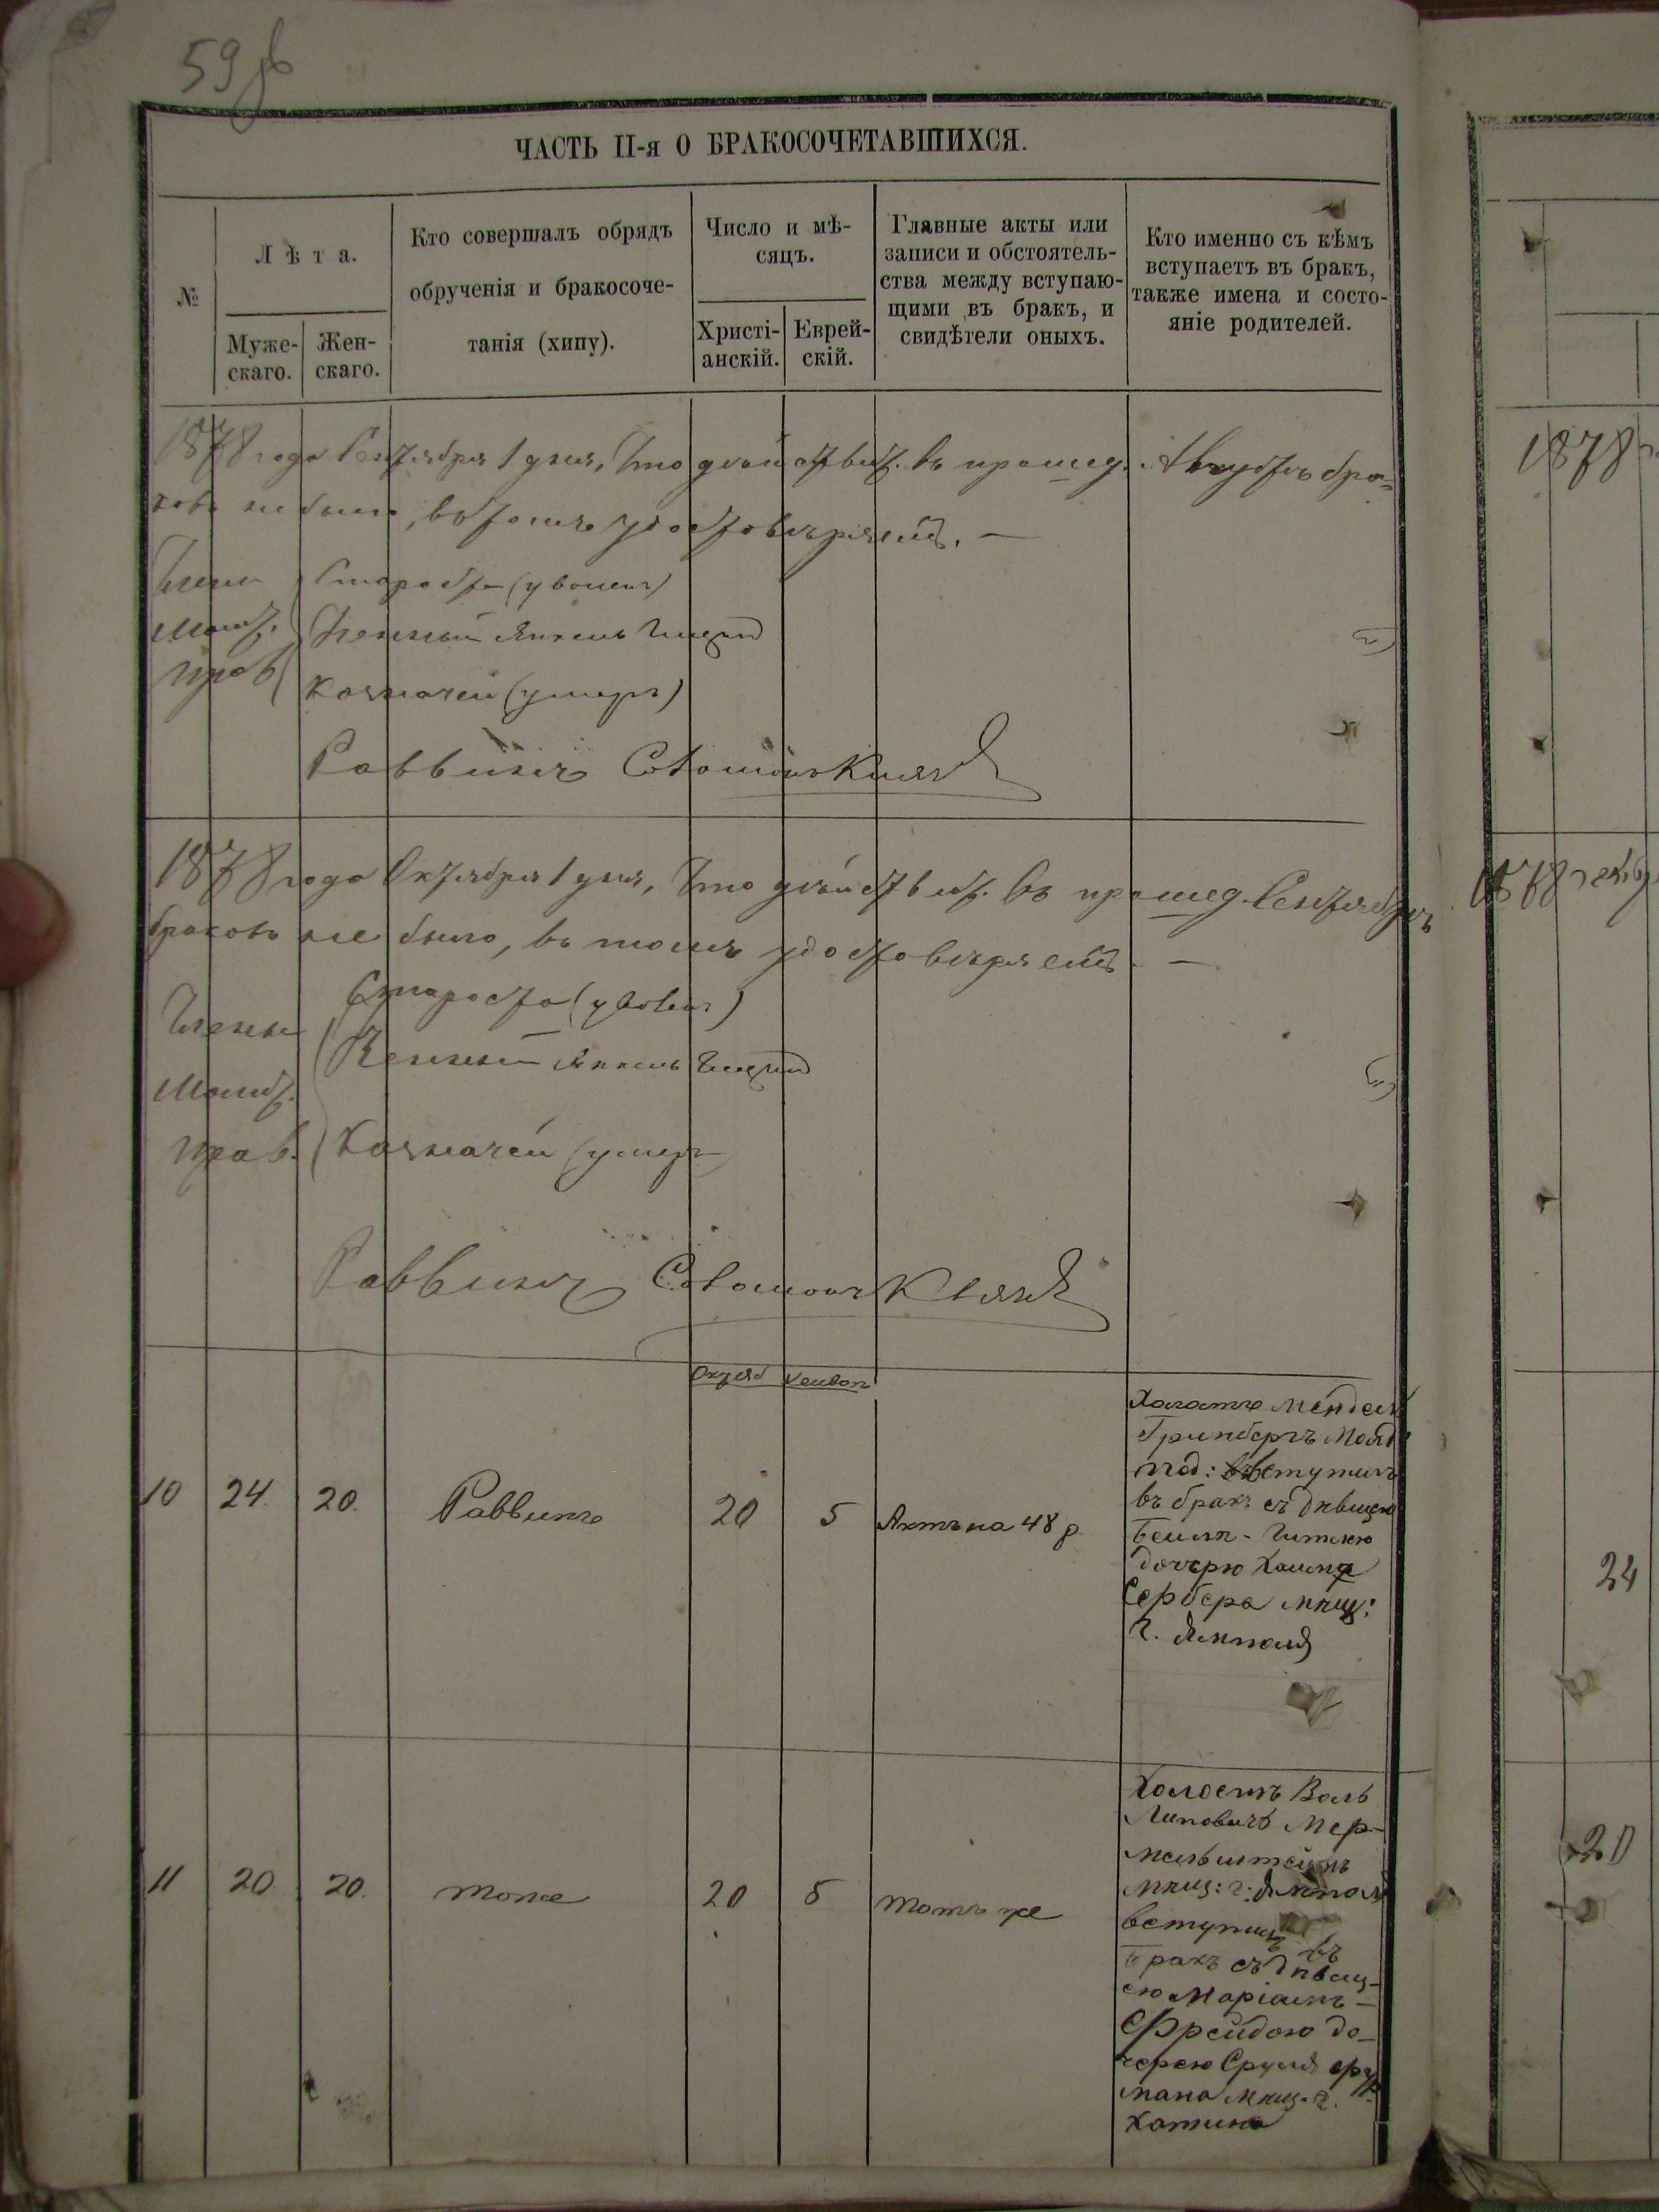 59 об
ЧАСТЬ II-я О БРАКОСОЧЕТАВШИХСЯ.
№
Лѣта.
Муже-
скаго.
Жен-
скаго.
Кто совершалъ обрядъ
обрученія и бракосоче-
танія (хипу).
Число и мѣ-
сяцъ.
Христі-
анскій.
Еврей-
скій.
Главные акты или
записи и обстоятель-
ства между вступаю-
щими въ бракъ, и
свидѣтели оныхъ.
Кто именно съ кѣмъ
вступаетъ въ бракъ,
также имена и состо-
яніе родителей.
1878 года Сентября 1 дня, Что дѣйствит. въ прошед. Августѣ бра-
ковъ не было, въ томъ удостовѣряемъ. —
Члены Староста (уволенъ)
Молит. Ученый Янкель
Прав. Казначей (умеръ)
Раввинъ
1878 года Октября 1 дня, Что дѣйствит. въ прошед. Сентябрѣ
браковъ не было, въ томъ удостовѣряемъ. —
Староста (уволенъ)
Члены Ученый Янкель
Молит.
Прав. Казначей (умеръ)
Раввинъ
Октяб
10 24. 20. Раввинъ 20 5 Актъ на 48 р.
Холостъ Мендель
Гринбергъ
под: вступилъ
въ бракъ съ дѣвицею
Бейля-Гиткою
дочерью
Сербера мѣщ:
г. Ямполя
11 20 20. тоже 20 5 тотъ же
Холостъ Воль
Липовичъ Мер-
мельштейнъ
мѣщ: г: Ямполя
вступилъ въ
бракъ съ дѣвиц-
ею Маріамъ-
Фрейдою до-
черею Сруля
мана мѣщ. г.
Хотина
1878
24
20